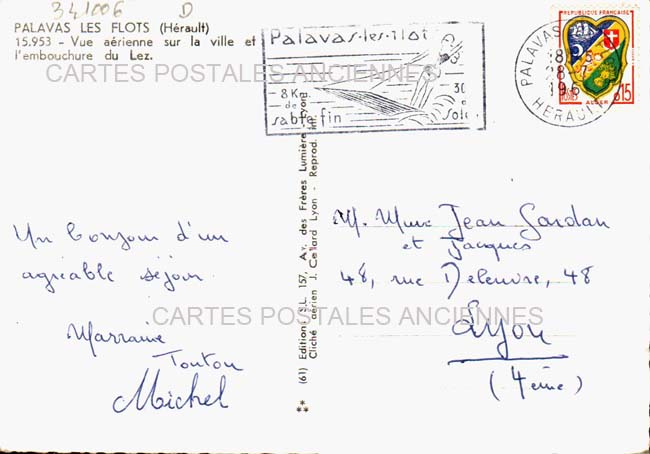 341006 D
PALAVAS LES FLOTS (Hérault)
15.953 - Vue aérienne sur la ville et
l'embouchure du Lez.
Palavas-les-flot
8 Km.
de
sable fin
30
Solei
PALAVAS
HERAULT
RÉPUBLIQUE FRANÇAISE
POSTES
ALGER
0,15
CARTES POSTALES ANCIENNES
Un bonjour d'un
agréable séjour
Marraine
Tonton
Michel
(61) Editions S.L. 157, Av. des Frères Lumière - Lyon
Cliché aérien J. Cellard Lyon - Reprod. int.
M. Mme Jean Gardan
et Jacques
48, rue Deleuvre, 48
Lyon
(4ème)
CARTES POSTALES ANCIENNES